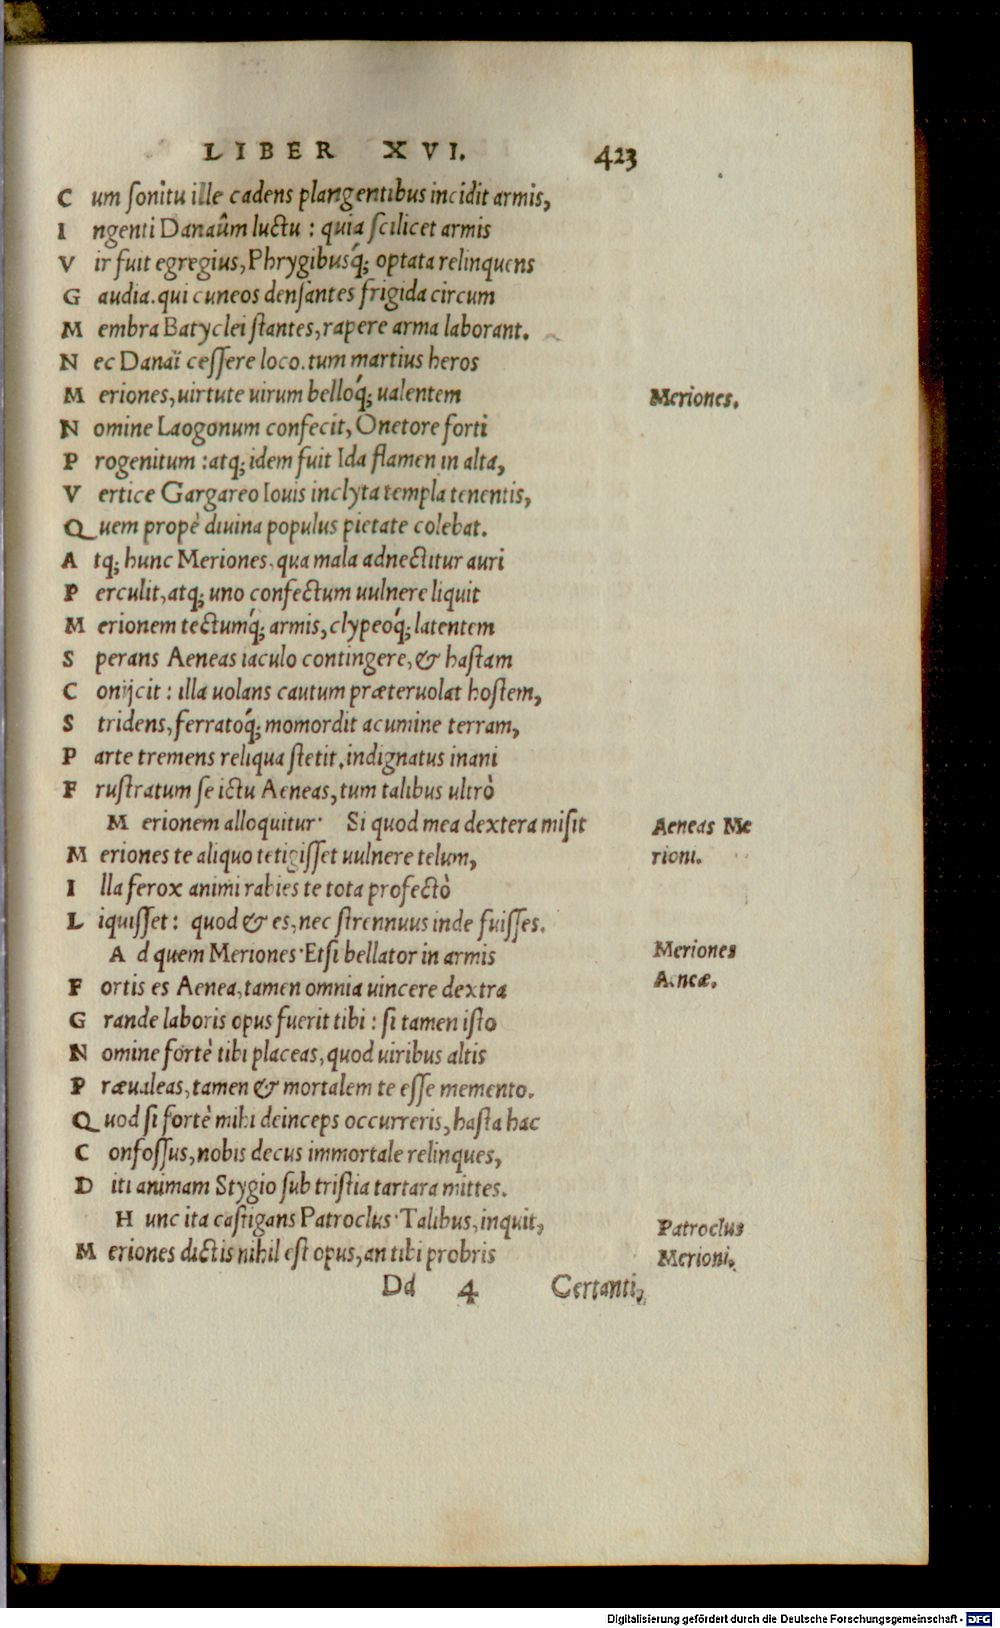 LIBER XVI. 423
Cum sonitu ille cadens plangentibus incidit armis,
Ingenti Danaûm luctu : quia scilicet armis
Vir fuit egregius, Phrygibusq́; optata relinquens
Gaudia. qui cuneos densantes frigida circum
Membra Batyclei stantes, rapere arma laborant.
Nec Danaï cessere loco. tum martius heros
Meriones, uirtute uirum belloq́; ualentem
Meriones.
Nomine Laogonum confecit, Onetore forti
Progenitum : atq; idem fuit Ida flamen in alta,
Vertice Gargareo Iouis inclyta templa tenentis,
Quem propè diuina populus pietate colebat.
Atq; hunc Meriones, qua mala adnectitur auri
Perculit, atq; uno confectum uulnere liquit
Merionem tectumq́; armis, clypeoq́; latentem
Sperans Aeneas iaculo contingere, & hastam
Conijcit : illa uolans cautum præteruolat hostem,
Stridens, ferratoq́; momordit acumine terram,
Parte tremens reliqua stetit. indignatus inani
Frustratum se ictu Aeneas, tum talibus ultrò
Merionem alloquitur· Si quod mea dextera misit
Aeneas Me
Meriones te aliquo tetigisset uulnere telum,
rioni.
Illa ferox animi rabies te tota profectò
Liquisset : quod & es, nec strennuus inde fuisses.
Ad quem Meriones· Etsi bellator in armis
Meriones
Fortis es Aenea, tamen omnia uincere dextra
Aeneæ.
Grande laboris opus fuerit tibi : si tamen isto
Nomine fortè tibi placeas, quod uiribus altis
Præualeas, tamen & mortalem te esse memento.
Quod si fortè mihi deinceps occurreris, hasta hac
Confossus, nobis decus immortale relinques,
Diti animam Stygio sub tristia tartara mittes.
Hunc ita castigans Patroclus· Talibus, inquit,
Patroclus
Meriones dictis nihil est opus, an tibi probris
Merioni.
Dd 4 Certanti,
Digitalisierung gefördert durch die Deutsche Forschungsgemeinschaft - DFG